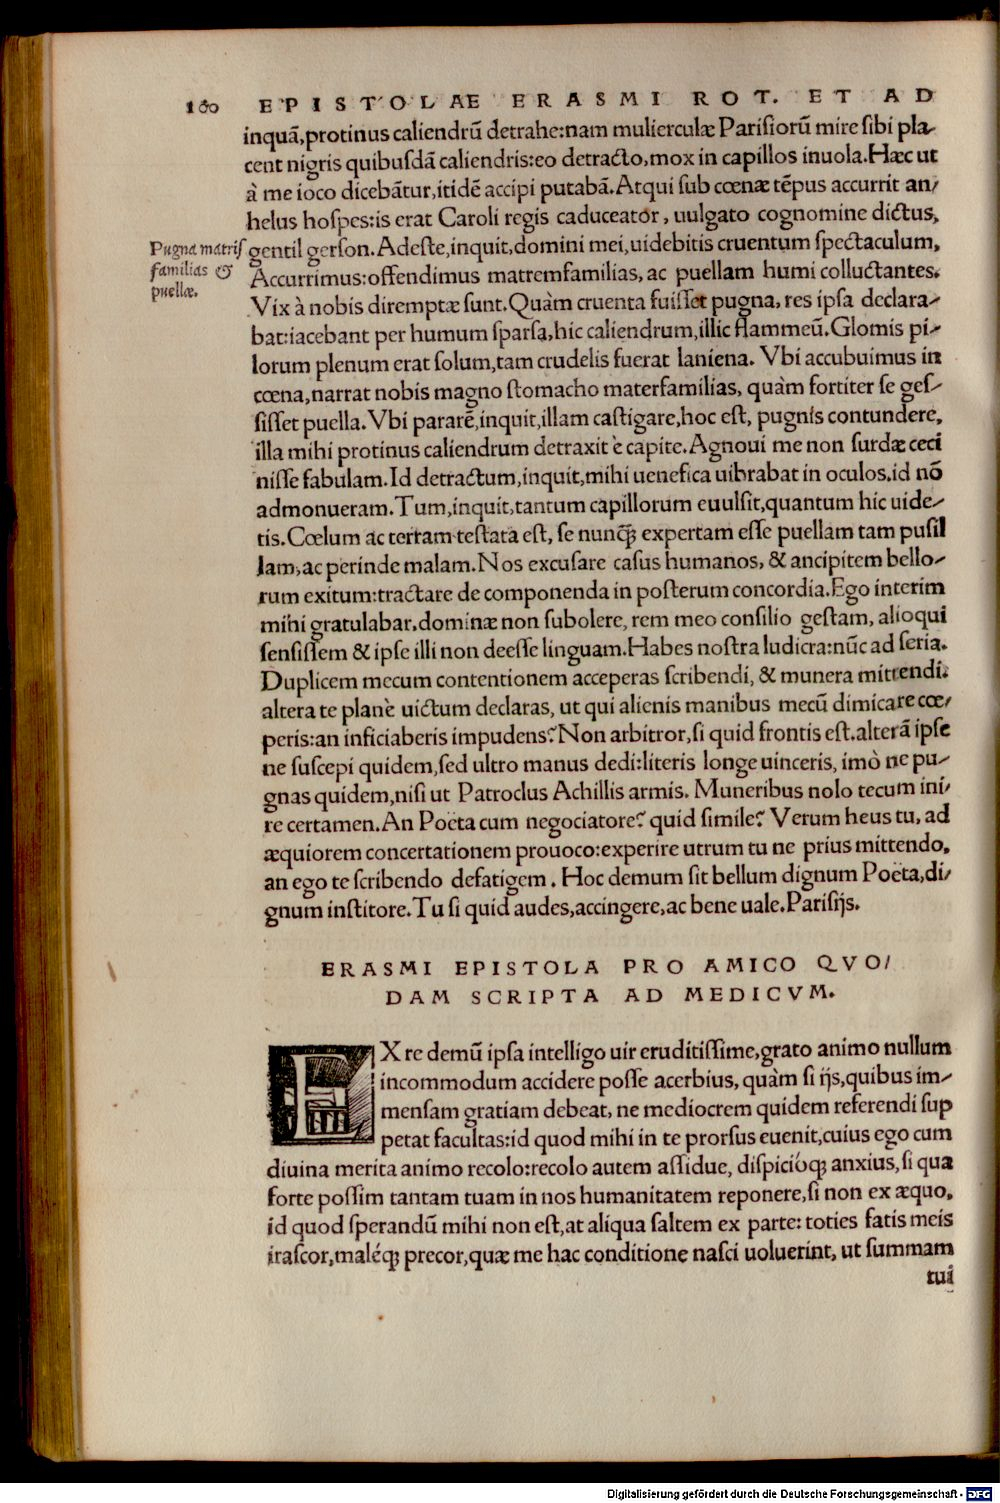 160 EPISTOLAE ERASMI ROT. ET AD
inquā,protinus caliendrū detrahe:nam mulierculæ Parisiorū mire sibi pla⸗
cent nigris quibusdā caliendris:eo detracto,mox in capillos inuola.Hæc ut
à me ioco dicebātur,itidē accipi putabā.Atqui sub cœnæ tēpus accurrit an⸗
helus hospes:is erat Caroli regis caduceator, uulgato cognomine dictus,
Pugna matris
familias &
puellæ.
gentil gerson.Adeste,inquit,domini mei,uidebitis cruentum spectaculum,
Accurrimus:offendimus matremfamilias, ac puellam humi colluctantes.
Vix à nobis diremptæ sunt.Quàm cruenta fuisset pugna, res ipsa declara⸗
bat:iacebant per humum sparsa,hic caliendrum,illic flammeū.Glomis pi⸗
lorum plenum erat solum,tam crudelis fuerat laniena. Vbi accubuimus in
cœna,narrat nobis magno stomacho materfamilias, quàm fortiter se ges⸗
sisset puella.Vbi pararē,inquit,illam castigare,hoc est, pugnis contundere,
illa mihi protinus caliendrum detraxit è capite.Agnoui me non surdæ ceci
nisse fabulam.Id detractum,inquit,mihi uenefica uibrabat in oculos.id nō
admonueram.Tum,inquit,tantum capillorum euulsit,quantum hic uide⸗
tis.Cœlum ac terram testata est, se nunq̃ expertam esse puellam tam pusil
lam,ac perinde malam.Nos excusare casus humanos, & ancipitem bello⸗
rum exitum:tractare de componenda in posterum concordia.Ego interim
mihi gratulabar.dominæ non subolere, rem meo consilio gestam, alioqui
sensissem & ipse illi non deesse linguam.Habes nostra ludicra:nūc ad seria.
Duplicem mecum contentionem acceperas scribendi, & munera mittendi.
altera te planè uictum declaras, ut qui alienis manibus mecū dimicare cœ⸗
peris:an inficiaberis impudens?Non arbitror,si quid frontis est.alterā ipse
ne suscepi quidem,sed ultro manus dedi:literis longe uinceris, imò ne pu⸗
gnas quidem,nisi ut Patroclus Achillis armis. Muneribus nolo tecum ini⸗
re certamen.An Poëta cum negociatore? quid simile? Verum heus tu, ad
æquiorem concertationem prouoco:experire utrum tu ne prius mittendo,
an ego te scribendo defatigem. Hoc demum sit bellum dignum Poëta,di⸗
gnum institore.Tu si quid audes,accingere,ac bene uale.Parisijs.
ERASMI EPISTOLA PRO AMICO QVO⸗
DAM SCRIPTA AD MEDICVM.
EX re demū ipsa intelligo uir eruditissime,grato animo nullum
incommodum accidere posse acerbius, quàm si ijs,quibus im⸗
mensam gratiam debeat, ne mediocrem quidem referendi sup
petat facultas:id quod mihi in te prorsus euenit,cuius ego cum
diuina merita animo recolo:recolo autem assidue, dispicióq; anxius,si qua
forte possim tantam tuam in nos humanitatem reponere,si non ex æquo,
id quod sperandū mihi non est,at aliqua saltem ex parte: toties fatis meis
irascor,maléq; precor,quæ me hac conditione nasci uoluerint, ut summam
tui
Digitalisierung gefördert durch die Deutsche Forschungsgemeinschaft - DFG